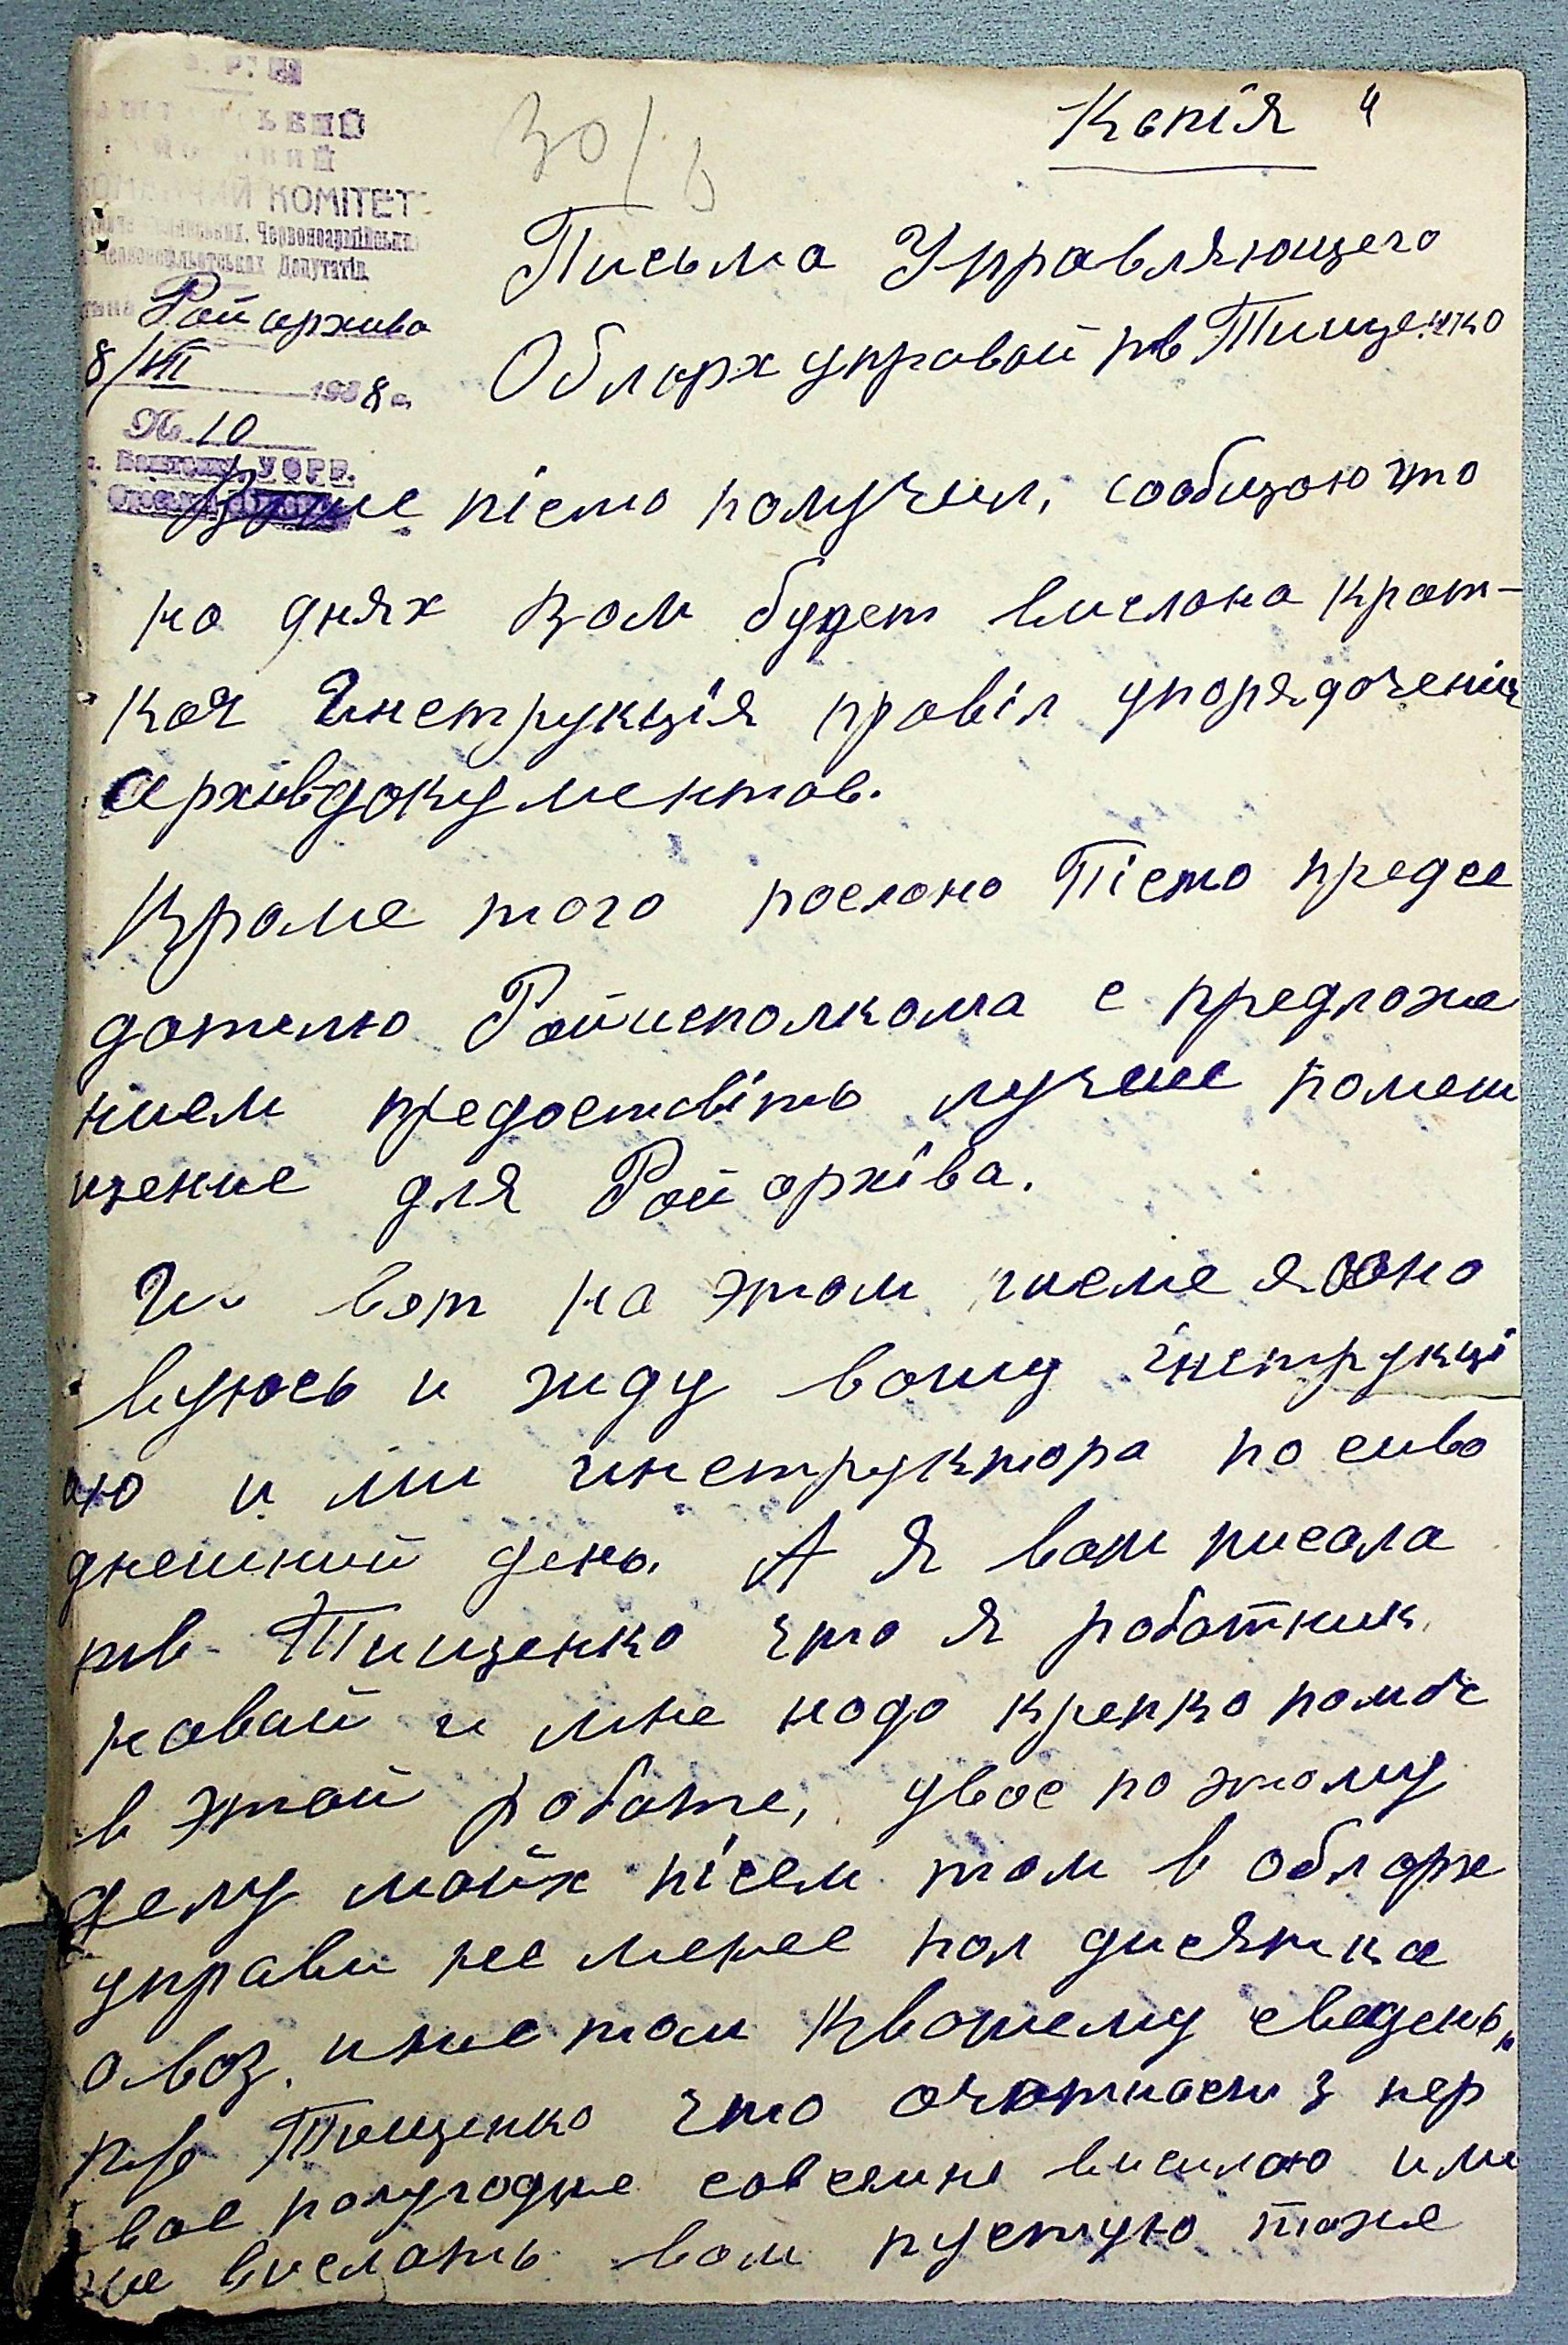 КОМІТЕТ
Червоноармійськ
Червонофльотських Депутатів
Райархива
8/VII 1938 г.
№ 10
УСРР.
30/
Копія "
Письмо Управляющего
Обларх управой тв Тищенко
Ваше пісмо получил, сообщаю что
на днях Вам будет вислана крат-
кая Инструкція правіл упорядоченія
архівдокументов.
Кроме того послано Пісмо предсе
дателю Райисполкома с предложе
нием предоставіть лучше помеш
щение для Райархіва.
И вот на этом писме я осно
вуюсь и жду вашу інструкці
ю и ли инструктора по сиво
днешний день. А Я вам писала
тв Тищенко что я работник
новай и мне надо крепко помоч
в этой работе, увас по этому
делу мойх пісем там в обларх
управи не менее пол дисятка
авоз. и неетам Квашему сведень"
тв Тищенко что очотность з пер
вое полугодие савсемне висилаю или
же вислать вам пустую тоже